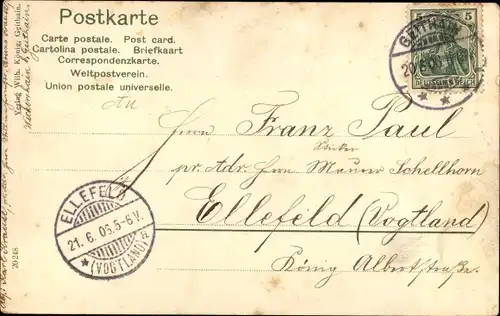 Postkarte
Carte postale. Post card.
Cartolina postale. Briefkaart
Correspondenzkarte.
Weltpostverein.
Union postale universelle.
Verlag Wilh. König, Geithain.
20248
5 5
DEUTSCHES REICH
GEITHAIN
20.6.05
An
Herrn Franz Paul
pr. Adr. Herrn Maurer Schellhorn
Ellefeld (Vogtland)
König Albertstraße.
ELLEFELD
21.6.05.5-6V.
* (VOGTLAND) a